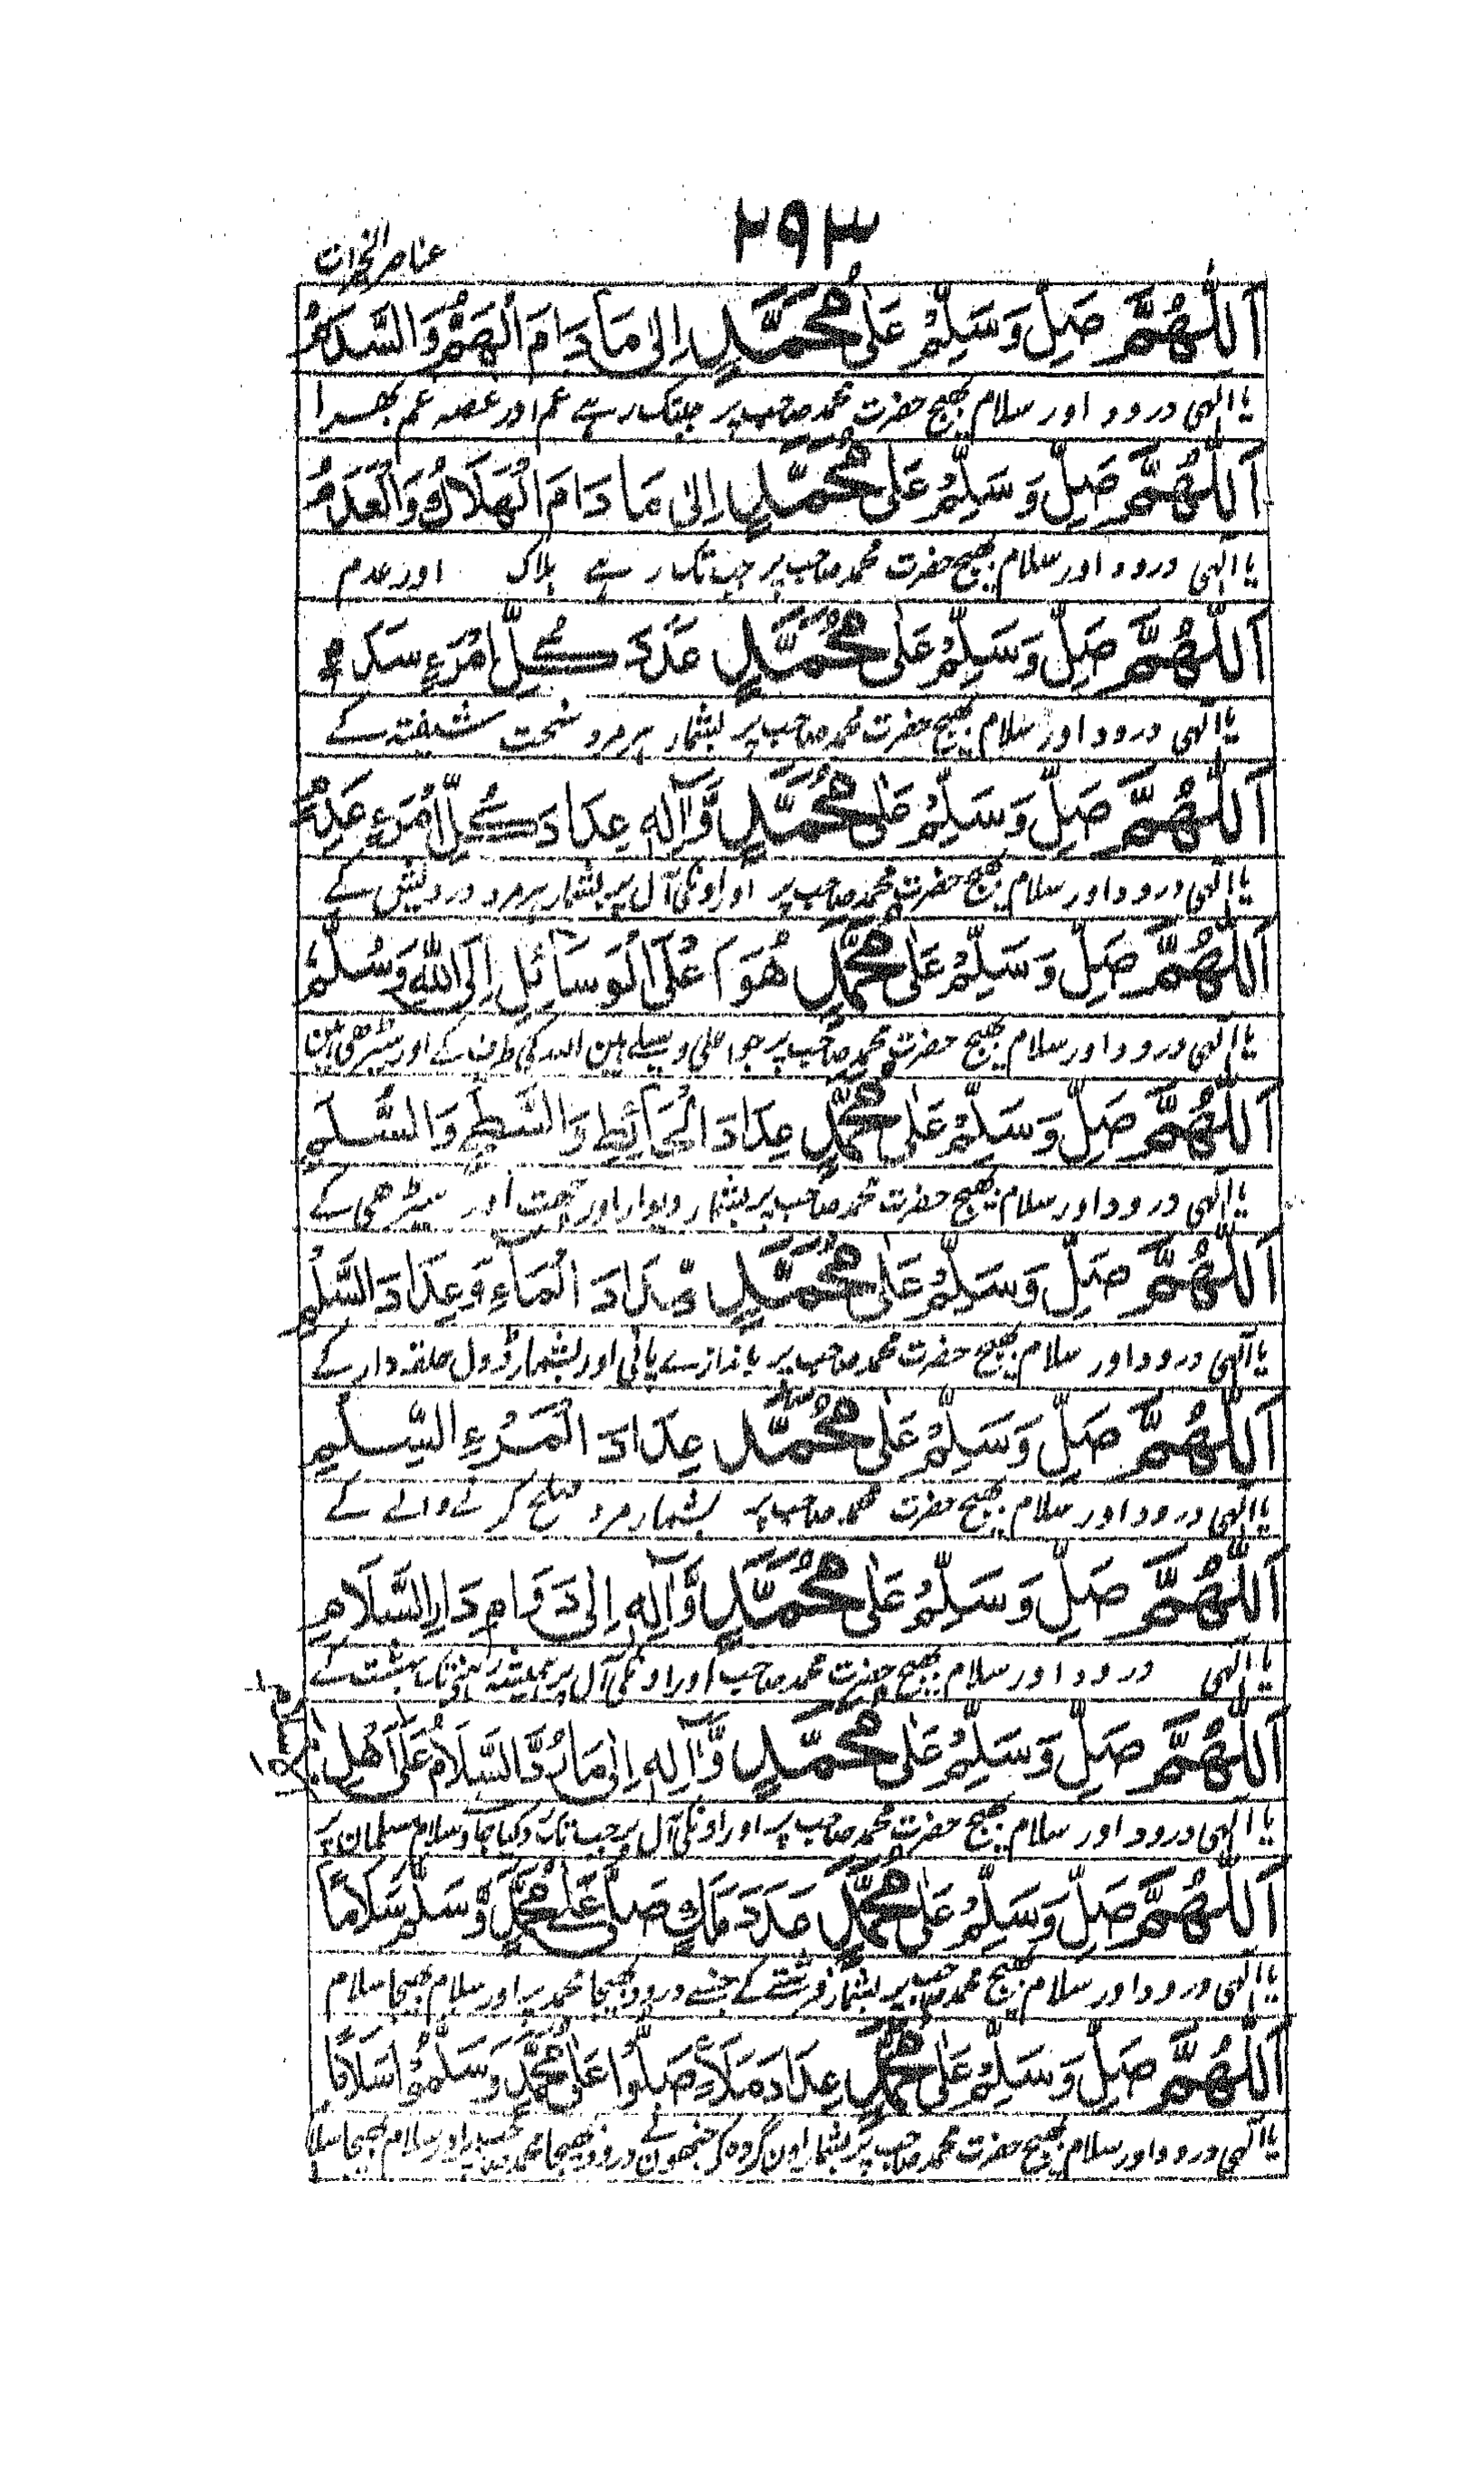 ۲۹۳
عناصر الخیرات
اَللّٰهُمَّ صَلِّ وَسَلِّمْ عَلٰى مُحَمَّدٍ اِلٰى مَا دَامَ الْهَمُّ وَالسَّدَمُ
یا الٰہی درود اور سلام بھیج حضرت محمد صاحب پر جبتک رہے غم اور غصہ غم بھرا
اَللّٰهُمَّ صَلِّ وَسَلِّمْ عَلٰى مُحَمَّدٍ اِلٰى مَا دَامَ الْهَلَاكُ وَالْعَدَمُ
یا الٰہی درود اور سلام بھیج حضرت محمد صاحب پر جب تک رہے ہلاک اور عدم
اَللّٰهُمَّ صَلِّ وَسَلِّمْ عَلٰى مُحَمَّدٍ عَدَدَ كُلِّ امْرَءٍ سَدِمٍ
یا الٰہی درود اور سلام بھیج حضرت محمد صاحب پر بشمار ہر مرد سخت شیفتہ کے
اَللّٰهُمَّ صَلِّ وَسَلِّمْ عَلٰى مُحَمَّدٍ وَّآلِهٖ عِدَادَ كُلِّ امْرَءٍ عَدِمٍ
یا الٰہی درود اور سلام بھیج حضرت محمد صاحب پر اور اونکی آل پر بشمار ہر مرد درویش کے
اَللّٰهُمَّ صَلِّ وَسَلِّمْ عَلٰى مُحَمَّدٍ هُوَ اَعْلَى الْوَسَائِلِ اِلَى اللّٰهِ وَسُلَّمٌ
یا الٰہی درود اور سلام بھیج حضرت محمد صاحب پر جو اعلی وسیلے ہین اللہ کی طرف کے اور سیڑھی ہین
اَللّٰهُمَّ صَلِّ وَسَلِّمْ عَلٰى مُحَمَّدٍ عِدَادَ الْحَائِطِ وَالسَّطْحِ وَالسُّلَّمِ
یا الٰہی درود اور سلام بھیج حضرت محمد صاحب پر بشمار دیوار اور چھت اور سیڑھی کے
اَللّٰهُمَّ صَلِّ وَسَلِّمْ عَلٰى مُحَمَّدٍ مِدَادَ الْمَآءِ وَعِدَادَ السَّلْمِ
یا الٰہی درود اور سلام بھیج حضرت محمد صاحب پر باندازے پانی اور بشمار ڈول حلقہ دار کے
اَللّٰهُمَّ صَلِّ وَسَلِّمْ عَلٰى مُحَمَّدٍ عِدَادَ الْمَرْءِ السِّلْمِ
یا الٰہی درود اور سلام بھیج حضرت محمد صاحب پر بشمار مرد صلح کرنے والے کے
اَللّٰهُمَّ صَلِّ وَسَلِّمْ عَلٰى مُحَمَّدٍ وَّآلِهٖ اِلٰى دَوَامِ دَارِ السَّلَامِ
یا الٰہی درود اور سلام بھیج حضرت محمد صاحب اور اونکی آل پر ہمیشہ ہونے تک بہشت کے
اَللّٰهُمَّ صَلِّ وَسَلِّمْ عَلٰى مُحَمَّدٍ وَّآلِهٖ اِلٰى مَا رُدَّ السَّلَامُ عَلٰى اَهْلِ
یا الٰہی درود اور سلام بھیج حضرت محمد صاحب پر اور اونکی آل پر جب تک رد کیا جاوے سلام مسلمان پر
اَللّٰهُمَّ صَلِّ وَسَلِّمْ عَلٰى مُحَمَّدٍ عَدَدَ مَلَكٍ صَلّٰى عَلٰى مُحَمَّدٍ وَّسَلَّمَ سَلَامًا
یا الٰہی درود اور سلام بھیج محمد صاحب پر بشمار فرشتے کے جسنے درود بھیجا محمد پر اور سلام بھیجا سلام
اَللّٰهُمَّ صَلِّ وَسَلِّمْ عَلٰى مُحَمَّدٍ عِدَادَ مَلَاءٍ صَلُّوْا عَلٰى مُحَمَّدٍ وَسَلَّمُوْا سَلَامًا
یا الٰہی درود اور سلام بھیج حضرت محمد صاحب پر بشمار اون گروہ کے جنھون نے درود بھیجا محمد صاحب پر اور سلام بھیجا سلا